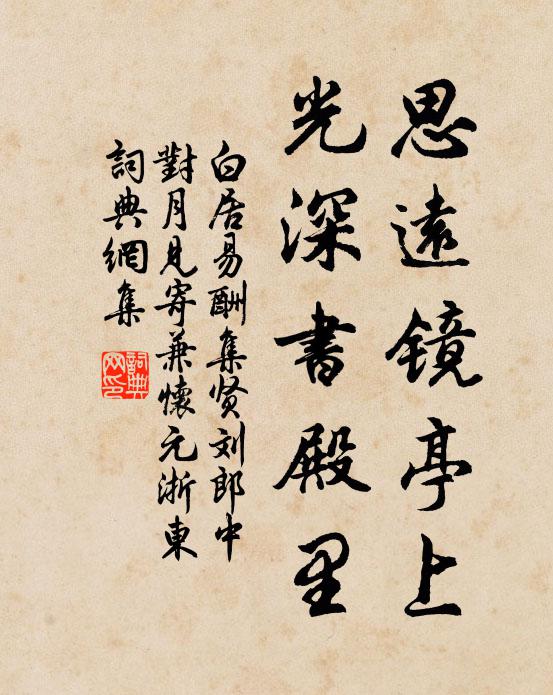 思遠镜亭上
光深書殿里
白居易酬集贤刘郎中
對月見寄兼懷元浙東
詞典網集
詞典網印